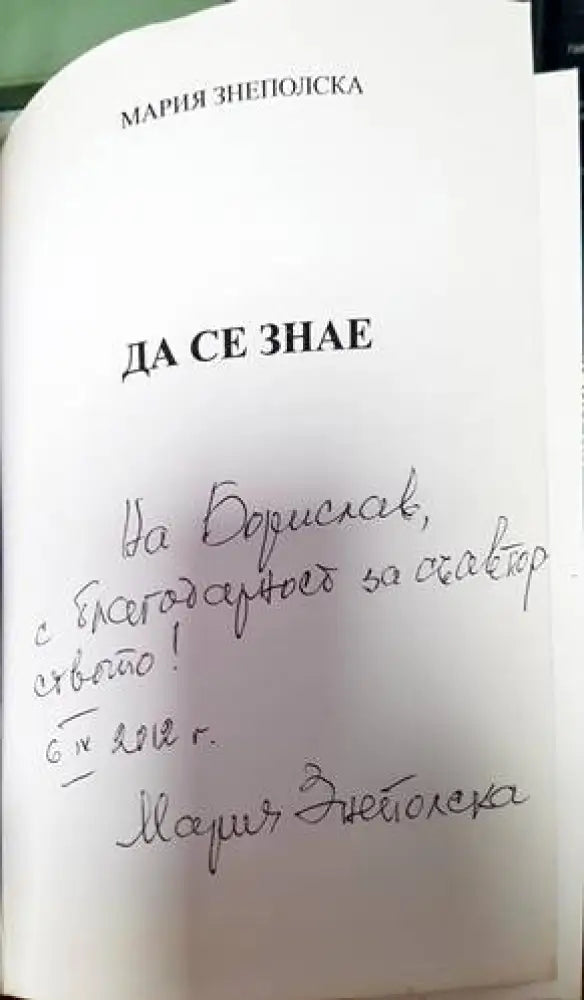 МАРИЯ ЗНЕПОЛСКА
ДА СЕ ЗНАЕ
На Борислав,
с благодарност за съавтор
ството!
6 IV 2012 г.
Мария Знеполска